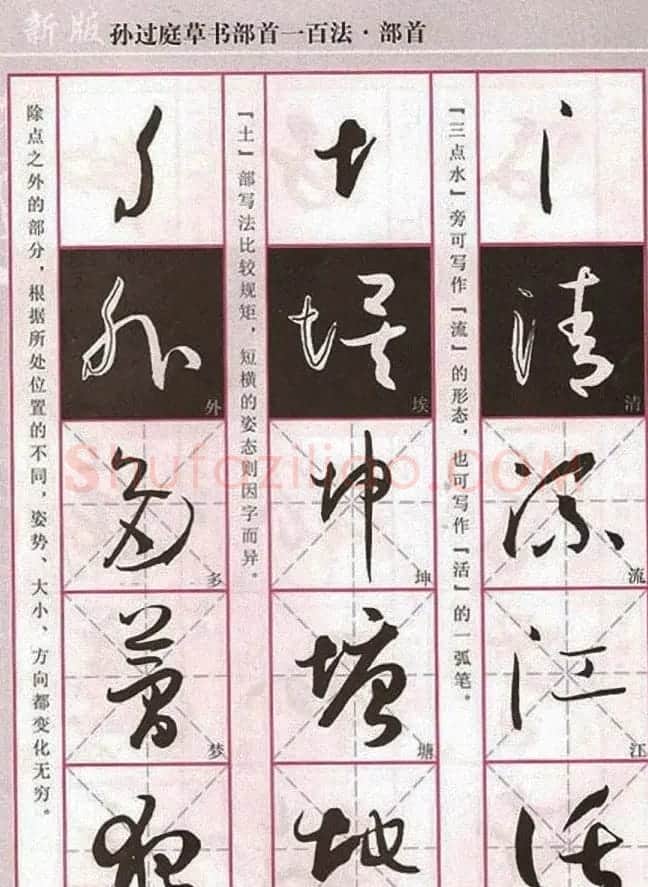 新版 孙过庭草书部首一百法·部首
氵
清
流
江
『三点水』旁可写作『流』的形态，也可写作『活』的一弧笔。
土
埃
坤
塘
地
『土』部写法比较规矩，短横的姿态则因字而异。
夕
外
多
梦
除点之外的部分，根据所处位置的不同，姿势、大小、方向都变化无穷。
Shufaziliao.COM